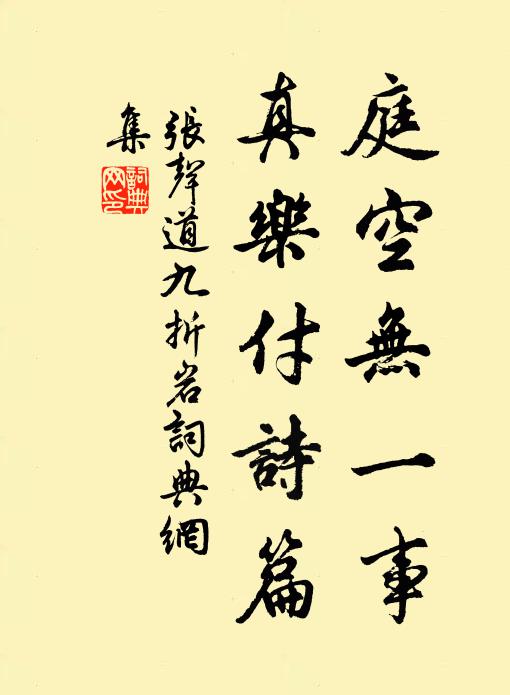 庭空無一事
真樂付詩篇
張聲道九折岩詞典網
集
詞典
网印